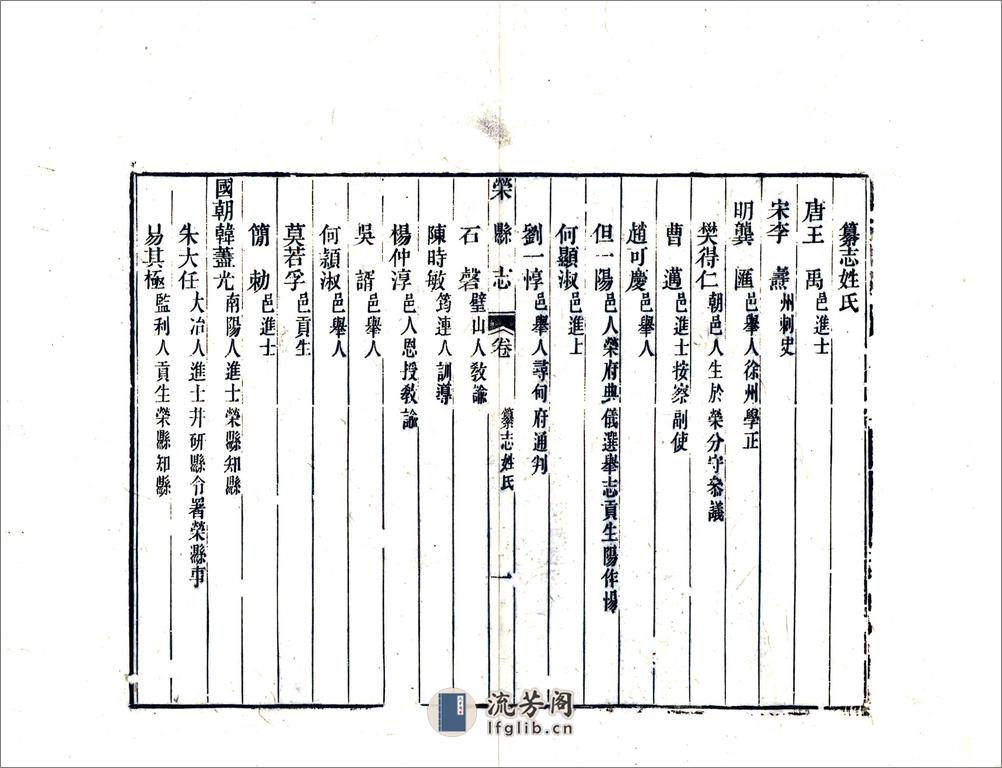 纂志姓氏
唐王　禹邑進士
宋李　燾州刺史
明龔　匯邑舉人徐州學正
樊得仁朝邑人生於榮分守叅議
曹　邁邑進士按察副使
趙可慶邑舉人
但一陽邑人榮府典儀選舉志貢生陽作惕
何顯淑邑進士
劉一惇邑舉人尋甸府通判
榮縣志　卷　纂志姓氏　一
石　磬璧山人敎諭
陳時敏筠連人訓導
楊仲淳邑人恩授敎諭
吳　諝邑舉人
何潁淑邑舉人
莫若孚邑貢生
簡　勑邑進士
國朝韓藎光南陽人進士榮縣知縣
朱大任大冶人進士井研縣令署榮縣事
易其極監利人貢生榮縣知縣
流芳阁
lfglib.cn